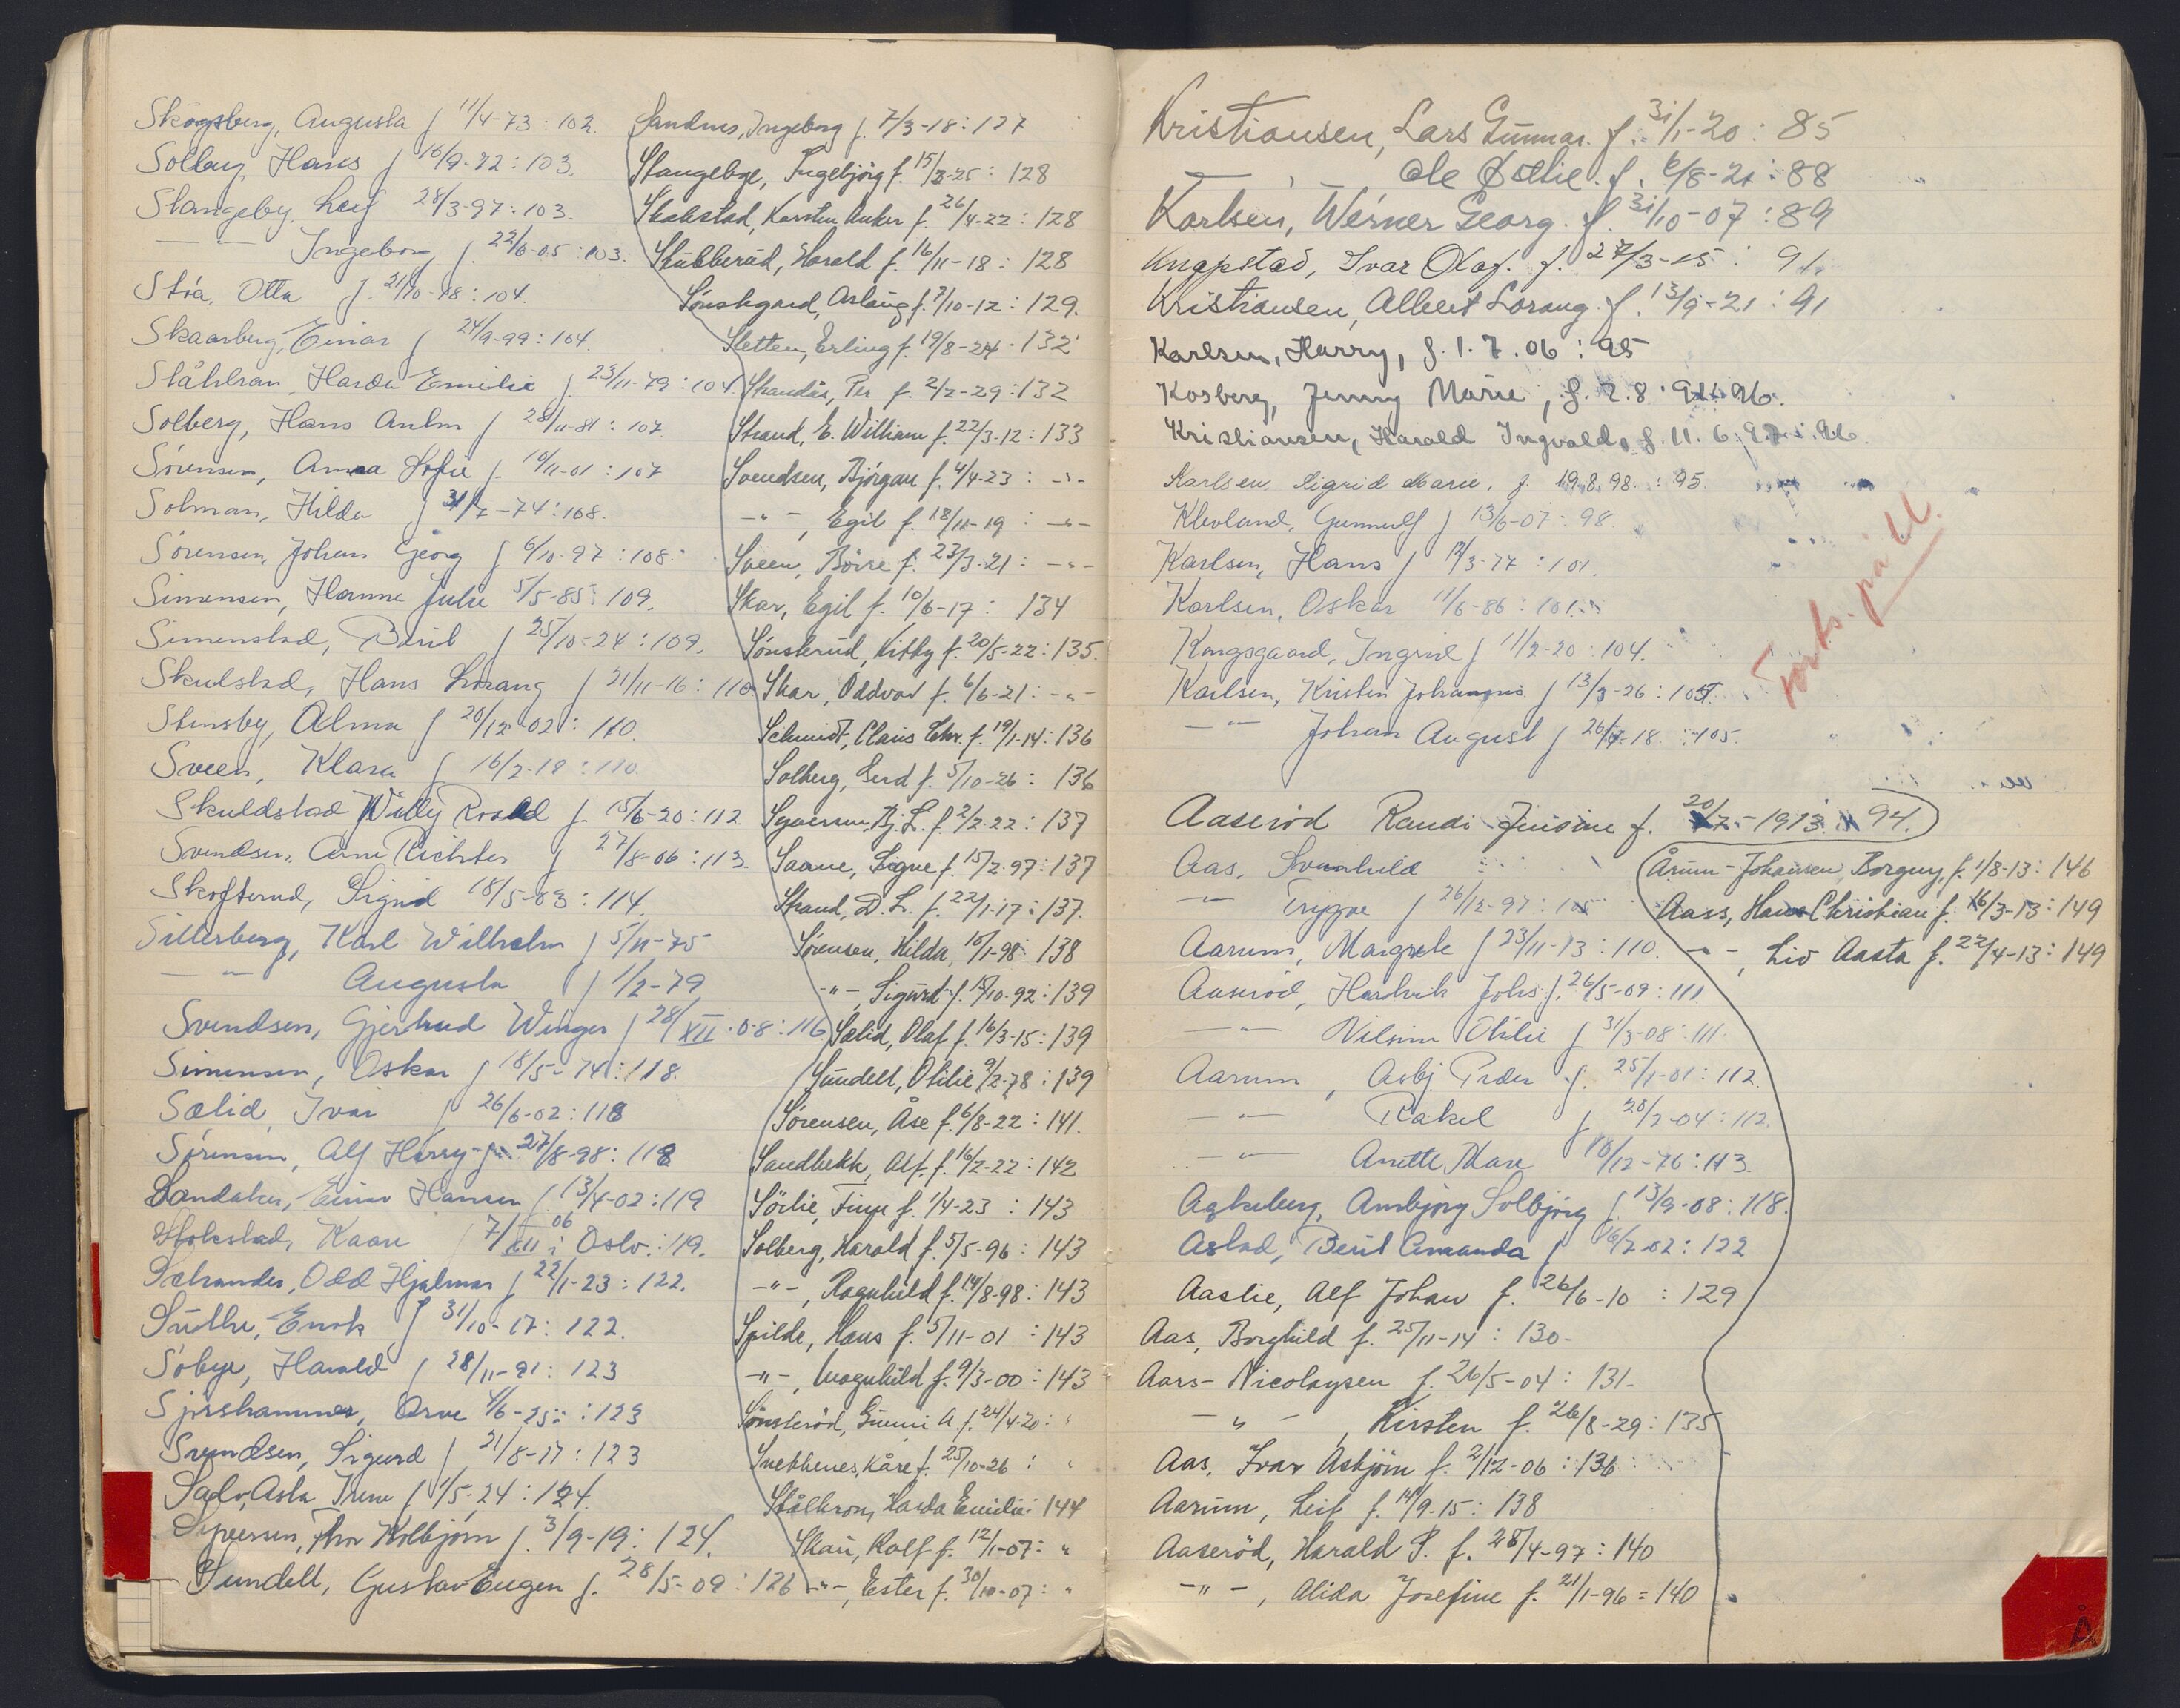 Skogsberg, Augusta f 11/4-73 : 102.
Solberg, Hans f 16/9-72 : 103.
Stangeby, Leif 28/3-97 : 103.
— — Ingeborg f. 22/6-05 : 103.
Stra, Otta f. 21/10-78 : 104.
Skaarberg, Einar f 24/9-99 : 104.
Ståhlkran Harda Emilie f 23/11-79 : 104
Solberg, Hans Anton f 28/11-81 : 107
Sörensen, Anna Sofie f. 10/11-01 : 107
Solman, Hilda f 31/7-74 : 108.
Sörensen, Johan Georg f 6/10-97 : 108.
Simensen, Hanna Julie 5/5-85 : 109.
Simenstad, Berit f 25/10-24 : 109.
Skulstad, Hans Lorang f 21/11-16 : 110
Stensby, Alma f 20/12-02 : 110.
Sveen, Klara f 16/2-18 : 110.
Skuldstad Willy Roald f. 15/6-20 : 112.
Svendsen, Arne Richter f 27/8-06 : 113.
Skofterud, Sigrid 18/5-83 : 114.
Sillerberg, Karl Wilhelm f 5/11-75
— " — Augusta f 1/2-79
Svendsen, Gjertrud Winger f 28/XII-08 : 116
Simensen, Oskar f 18/5-74 : 118.
Sælid, Ivar f 26/6-02 : 118
Sörensen, Alf Harry f. 27/8-98 : 118
Sandaker, Einar Hansen f 13/4-02 : 119
Stokstad, Kaare f 7/XII 06 i Oslo : 119.
Odd Hjalmar f 22/1-23 : 122.
31/10-17 : 122.
Söbye, Harald f 28/11-91 : 123
Arve 4/6-25 : 123
Svendsen, Sigurd f 21/8-17 : 123
Asta Irene f 1/5-24 : 124.
Syversen, Thor Kolbjörn f. 3/9-19 : 124.
Sundell, Gustav Eugen f. 28/5-09 : 126
Sandnes, Ingeborg f. 7/3-18 : 127
Stangebye, Ingebjörg f. 15/3-25 : 128
Skakstad, Karsten Anker f. 26/4-22 : 128
Stubberud, Harald f. 16/11-18 : 128
Sönstegard, Aslaug f. 7/10-12 : 129.
Sletten, Erling f. 19/8-24 : 132
Strandås, Per f. 2/2-29 : 132
Strand, E. William f. 22/3-12 : 133
Svendsen, Björgan f. 4/4-23 : -"-
-"-, Egil f. 18/11-19 : -"-
Sveen, Börre f. 23/3-21 : -"-
Skar, Egil f. 10/6-17 : 134
Sönsterud, Kitty f. 20/5-22 : 135.
Skar, Oddvar f. 6/6-21 : -"-
Schmidt, Claus Chr. f. 19/1-14 : 136
Solberg, Gerd f. 5/10-26 : 136
Syversen, Bj. L. f. 2/2-22 : 137
Saane, Signe f. 15/2-97 : 137
Strand, D. L. f. 22/1-17 : 137.
Sörensen, Hilda, 10/1-98 138
-"-, Sigurd f. 18/10-92 : 139
Sælid, Olaf f. 16/3-15 : 139
Sundell, Otilie 9/2-78 : 139
Sörensen, Åse f. 6/8-22 : 141.
Sandbekk, Alf f. 16/2-22 : 142
Sörlie, Finn f. 1/4-23 : 143
Solberg, Harald f. 5/5-96 : 143
-"-, Ragnhild f. 14/8-98 : 143
Spilde, Hans f. 5/11-01 : 143
-"-, Magnhild f. 9/3-00 : 143
Sönsteröd, Gunni A. f. 24/4-20 : "
Snekkenes, Kåre f. 25/10-26 : "
Stålkron, Harda Emilie : 144
Skau, Rolf f. 12/1-07 : "
-"-, Ester f. 30/10-07 : "
Kristiansen, Lars Gunnar. f. 31/1-20 : 85
— " — Ole Østlie. f. 6/8-21 : 88
Karlsen, Werner Georg. f. 31/10-07 : 89
Knapstad, Ivar Olaf. f. 27/3-15 : 91.
Kristiansen, Albert Lorang. f. 13/9-21 : 91
Karlsen, Harry, f. 1.7.06 : 95
Kosberg, Jenny Marie, f. 2.8. 96.
Kristiansen, Harald Ingvald, f. 11.6.97 : 96.
Karlsen Sigrid Marie, f. 19.8.98. : 95.
Klevland, Gunnulf f 13/6-07 : 98.
Karlsen, Hans f 12/3-77 : 101.
Karlsen, Oskar 11/6-86 : 101.
Kongsgaard, Ingrid f 11/2-20 : 104.
Karlsen, Kristen Johannes f 13/3-26 : 105.
— " — Johan August f 26/7-18 : 105.
Forts. på ll.
Aaseröd Randi Jensine f. 20/7-1913. 94.
Aas, Svanhild
— " — Trygve f 26/12-97 :
Aarum, Margrete f 23/11-13 : 110.
Aaseröd, Hartvik Johs f. 26/5-09 : 111
— " — Nilsine Otilie f 31/3-08 : 111.
Aarum, Asbj. Peder f. 25/1-01 : 112.
— " — Rakel f 28/2-04 : 112.
— " — Anette Marie 10/12-76 : 113.
Aakeberg, Ambjörg Solbjörg f. 13/9-08 : 118.
Astad, Berit Amanda f 16/2-02 : 122
Aaslie, Alf Johan f. 26/6-10 : 129
Aas, Borghild f. 25/11-14 : 130-
Aars-Nicolaysen f. 26/5-04 : 131-
— " —, Kirsten f. 26/8-29 : 135
Aas, Ivar Asbjörn f. 2/12-06 : 136
Aarum, Leif f. 14/9-15 : 138
Aaseröd, Harald P. f. 28/4-97 : 140
-"-, Alida Josefine f. 21/1-96 = 140
Årum-Johansen, Borgny, f. 1/8-13 : 146
Aass, Hans Christian f. 16/3-13 : 149
-"-, Liv Aasta f. 22/4-13 : 149
Å